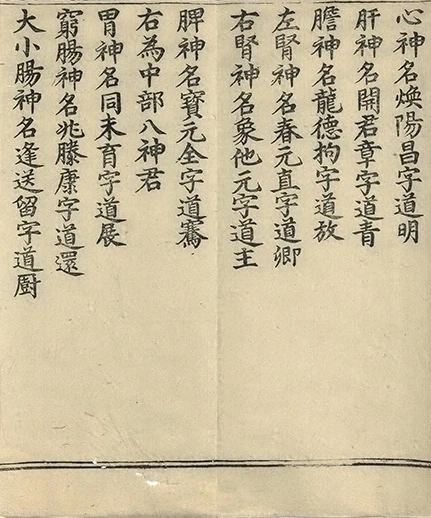 心神名煥陽昌字道明
肝神名開君章字道青
膽神名龍德拘字道放
左腎神名春元直字道卿
右腎神名象他元字道主
脾神名寶元全字道騫
右為中部八神君
胃神名同未育字道展
窮腸神名兆滕康字道還
大小腸神名逢送留字道厨